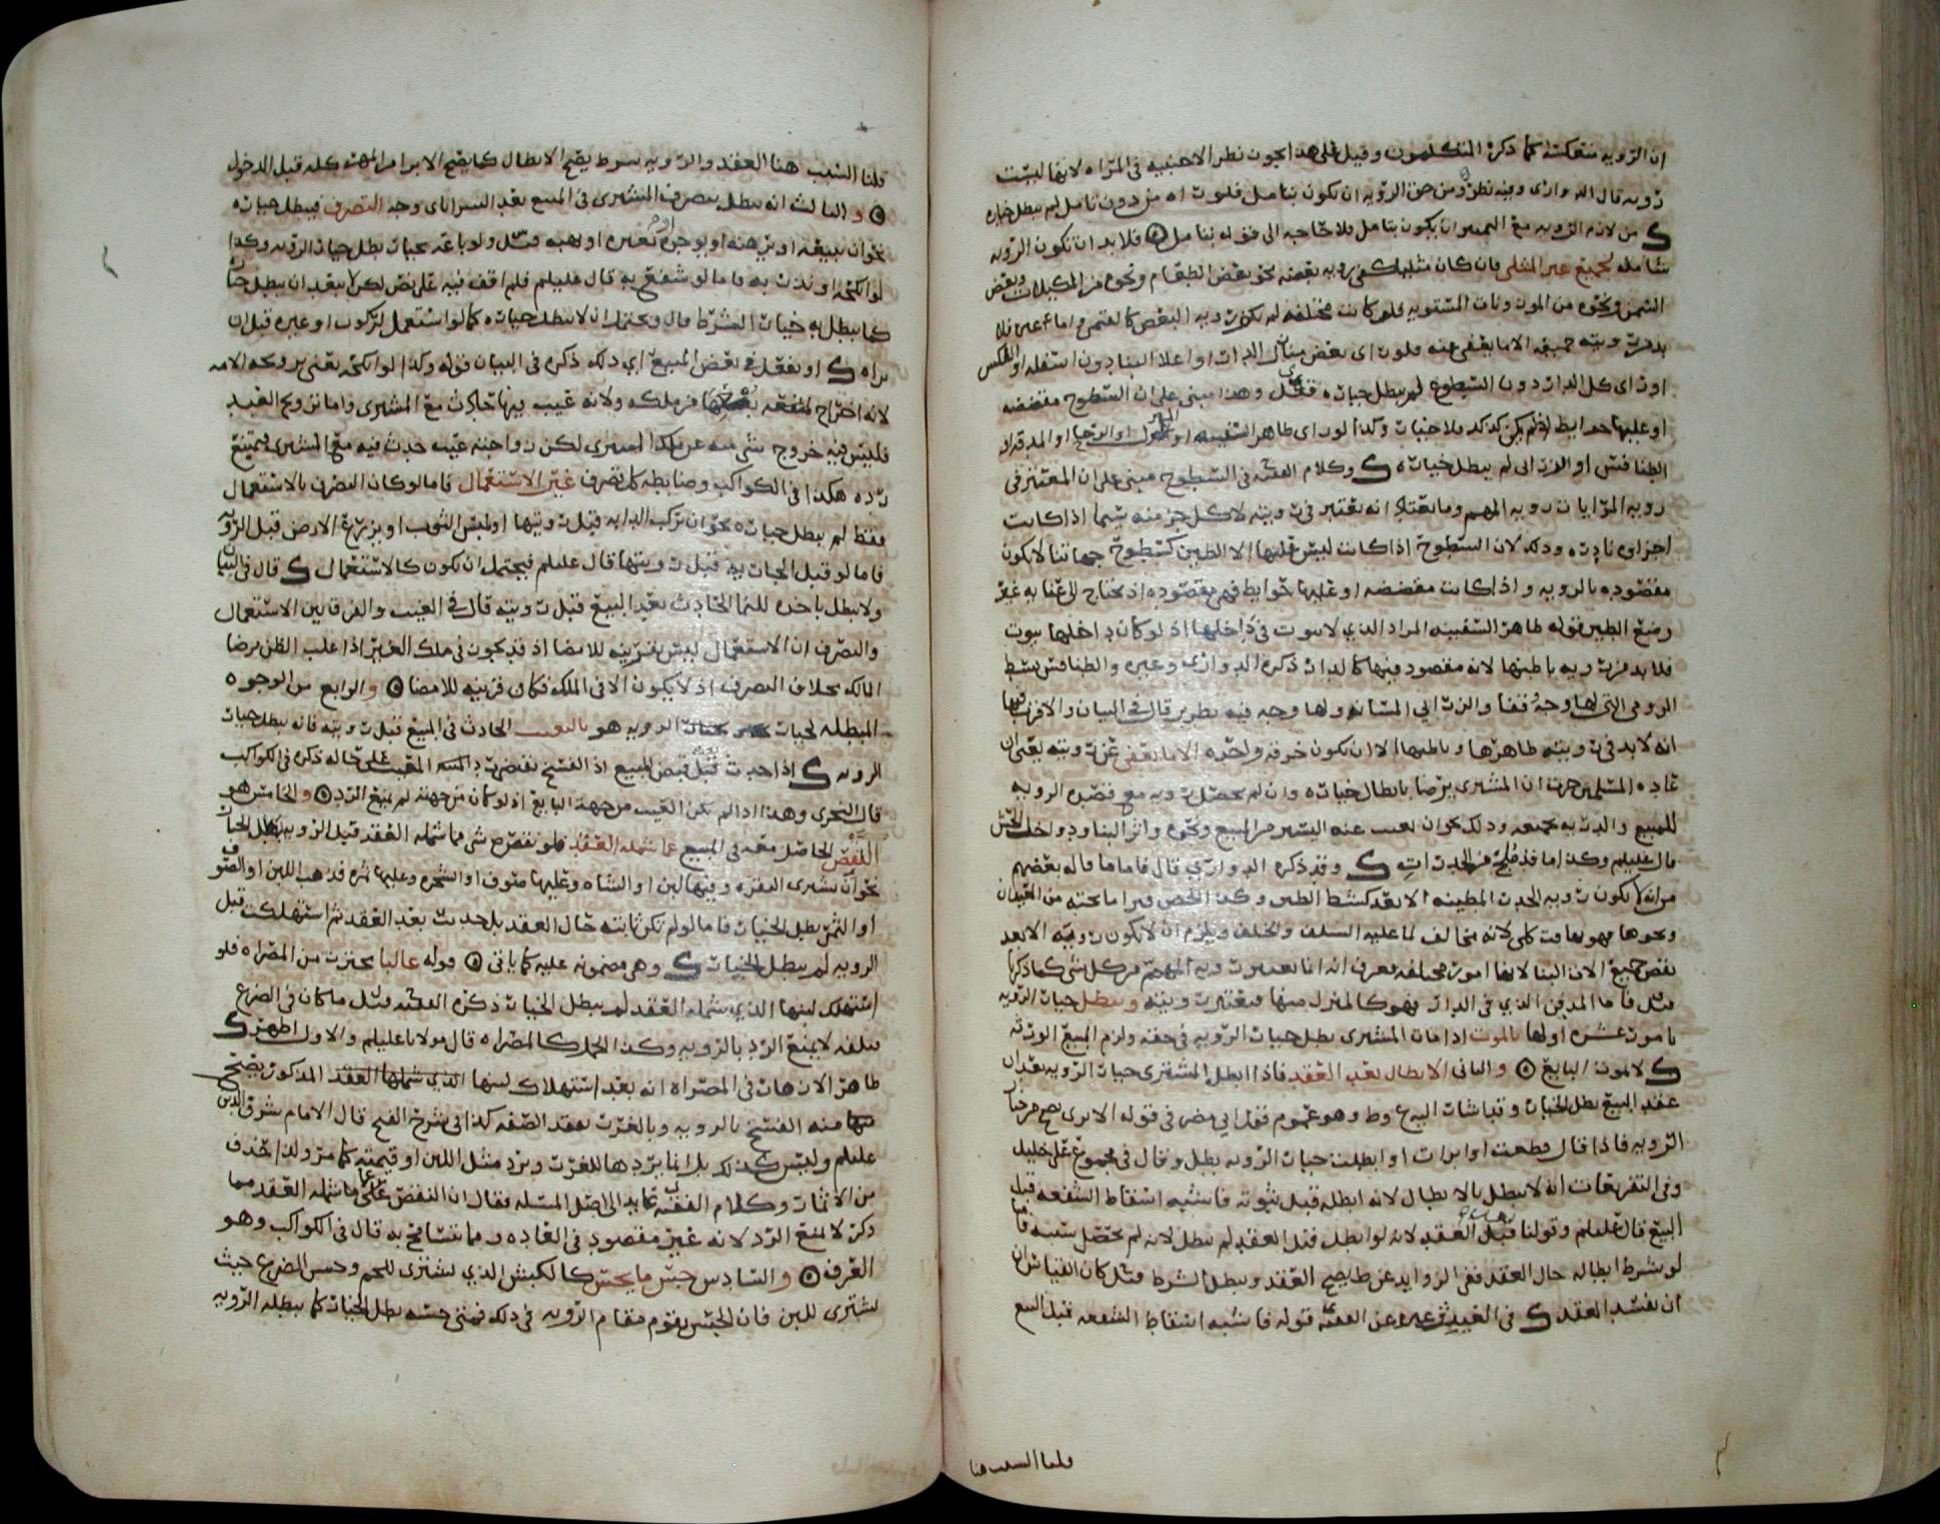 ان الروية منعكسة كما ذكره المتكلمون وقيل على هذا يجوز نظر الاجنبيه في المراه لانها ليست
رويه قال الدواري وفيه نظر ومن حق الرؤيه ان تكون بتامل فلو راه من دون تامل لم يبطل خياره
من لازم الرويه مع التمييز ان يكون بتامل فلا حاجه الى قوله بتامل فلا بد ان تكون الرويه
شامله لجميع غير المثلي فان كان مثليا كفى رويه بعضه نحو بعض الطعام ونحوه من المكيلات وبعض
السمن ونحوه من الموزونات المستويه فلو كانت مختلفه لم يكن رويه البعض كا واما غير فلا
بد من رويته جميعه الا ما يعفى عنه فلو راى بعض منازل الدار او اعلا البنا دون اسفله او العكس
او راى كل الدار دون السطوح لم يبطل خياره قيل وهذا مبنى على ان السطوح مغضضه
او عليها حوايط اذ لم يكن كذلك فلا خيار وكذا لو راى ظاهر السفينه او او الرحا او المدقه او
الطنافس او الزرابي لم يبطل خياره وكلام الفقيه في السطوح مبنى على ان المعتبر في
رويه المرايا رويه المهم وما يعتد انه يعتبر في رويته لا كل جزء منه سيما اذا كانت
اجزاوه نادره وذلك لان السطوح اذا كانت ليس عليها الا الطين كسطوح جهاتنا لا يكون
مقصوده بالرويه واذا كانت مغضضه او عليها حوايط فهي مقصوده اذ يحتاج الى عنايه غير
وضع الطين قوله ظاهر السفينه المراد الذي لا بيوت في داخلها اذ لو كان داخلها بيوت
فلا بد من رويه باطنها لانه مقصود فيها كالدار ذكره الدواري وغيره والطنافس بسط
الرومي التي لها وجه وقفا والزرابي السانه ولها وجه فيه تطريز قال في البيان والاقرب فيها
انه لا بد في رويته ظاهرها وباطنها الا ان يكون خرقه واحده الا ما يعفى عن رويته يعني ان
عاده المسلمين جرت ان المشتري يرضا بابطال خياره وان لم يحصل رويه مع قصره الرويه
للمبيع والرويه بجميعه وذلك نحو ان يغيب عنه اليسير من المبيع ونحوه واثر البنا وداخل الحش
قال عليلم وكذا ما قد طلح من الجدرات وقد ذكره الدواري قال فاما ما قاله بعضهم
من انه لا يكون رويه الجدر المطينه الا بعد كشط الطين وكذا الخص فيرا ما تحته من العيدان
ونحوها فهو تفاوت كلي لانه مخالف لما عليه السلف والخلف ويلزم ان لا يكون رويه الا بعد
نقض جميع الان البنا لانها امور مختلفه فعرف انه انما يعتبر رويه المهم من كل شي كما ذكرنا
قيل فاما المدفن الذي في الدار فهو كالمنزل منها فيعتبر رويته ويبطل خيار الرويه
بامور عشره اولها بالموت اذا مات المشتري بطل خيار الرويه في حقه ولزم المبيع الورثه
لا موت البايع والثاني الابطال بعد العقد فاذا ابطل المشتري خيار الرويه بعد ان
عقد البيع بطل الخيار وقياسات البيع وط وهو عموم قول ابي مضر في قوله الابرى يصح من خيار
الرويه فاذا قال قطعت او ابرات او ابطلت خيار الرويه بطل وقال في مجموع علي خليل
وفي التفريعات انه لا يبطل بالابطال لانه ابطله قبل ثبوته فاشبه اسقاط الشفعه قبل
البيع قال عليلم وقولنا قبل العقد لانه لو ابطله قبل العقد لم يبطل لانه لم يحصل سببه فاما
لو شرط ابطاله حال العقد ففي الزوايد عن ط يصح العقد ويبطل الشرط قيل كان القياس ان
ان يفسد العقد في الغيث وغيره عن الفقيه قوله فاشبه اسقاط الشفعه قبل البيع
قلنا السبب هنا
قلنا السبب هنا العقد والرويه شرط يصح الابطال كما يصح الابرا من المهر كله قبل الدخول
والثالث انه يبطل بتصرف المشتري في المبيع بعد الشرا باي وجه التصرف فيبطل خياره
نحو ان يبيعه او يرهنه او يوجره او يعيره او يهبه قيل ولو باعه بخيار بطل خيار الرويه وكذا
لو انكحه او نذر به فاما لو شفع به قال عليلم فلم اقف فيه على نص لكن لا يبعد ان يبطل خيار
كما يبطل به خيار الشرط قال ويحتمل ان لا يبطل خياره كما لو استعمل لركوب او غيره قبل ان
يراه او يفعل في بعض المبيع اي ذلك ذكره في البيان قوله وكذا لو انكحه يعني بزوجه الامه
لانه اخراج لمنفعه بضعها من ملكه ولانه عيب فيها حادث مع المشتري واما تزويج العبد
فليس فيه خروج شي منه عن ملك المشتري لكن زواجته عيب حدث فيه مع المشتري فيمتنع
رده هكذا في الكواكب وضابطه كل تصرف غير الاستعمال فاما لو كان التصرف بالاستعمال
فقط لم يبطل خياره نحو ان يركب الدابه قبل رويتها او لبس الثوب او يزرع الارض قبل الرؤيه
فاما لو قبل الجاريه قبل رويتها قال عليلم فيحتمل ان تكون كالاستعمال قال في البيان
ولا يبطل باخذه للنما الحادث بعد البيع قبل رويته قال في الغيث والفرق بين الاستعمال
والتصرف ان الاستعمال ليس بقرينه للامضا اذ قد يكون في ملك الغير اذا غلب الظن برضا
المالك بخلاف التصرف اذ لا يكون الا في الملك فكان قرينه للامضا والرابع من الوجوه
المبطله لخيار الرويه هو بالتعيب الحادث في المبيع قبل رويته فانه يبطل خيار
الرويه اذا حدث قبل قبض المبيع اذ الفسخ على حاله ذكره في الكواكب
قال النجري وهذا اذا لم يكن العيب من جهة البايع اذ لو كان من جهته لم يمنع الرد والخامس هو
النقص الحاصل معه في المبيع عما شمله العقد فلو نقص شي مما شمله العقد قبل الرويه بطل الخيار
نحو ان يشتري البقره وفيها لبن او الشاه وعليها صوف او الشجره وعليها ثمره فذهب اللبن او الصوف
او الثمر بطل الخيار فاما لو لم تكن ثابته حال العقد بل حدثت بعد العقد ثم استهلكت قبل
الرويه لم يبطل الخيار وهي مضمونه عليه كما ياتي قوله غالبا يحترز من المصراه فلو
استهلك لبنها الذي شمله العقد لم يبطل الخيار ذكره الفقيه قيل ما كان في الضرع
بتلفه لا يمنع الرد بالرويه وكذا الحمل كالمصراه قال مولانا عليلم والاول اظهر
ظاهر الازهار في المصراه انه بعد استهلاك لبنها الذي شملها العقد المذكور يصح
منه الفسخ بالرويه وبالغرر بفقد الصفه كذا في شرح الفتح قال الامام شرف الدين
عليلم وليس كذلك بل انما يردها للغرر ويرد مثل اللبن او قيمته كما مر ولذا حذف
من الاثمار وكلام الفقيه عايد الى اصل المسله فقال ان النقص عما شمله العقد مما
ذكر لا يمنع الرد لانه غير مقصود في العاده ومما يتسامح به قال في الكواكب وهو
العرف والسادس جس ما يجس كالكبش الذي يشترى للحم وجس الضرع حيث
يشترى للبن فان الجس يقوم مقام الرويه في ذلك فمتى جسه بطل الخيار كما يبطله الرويه